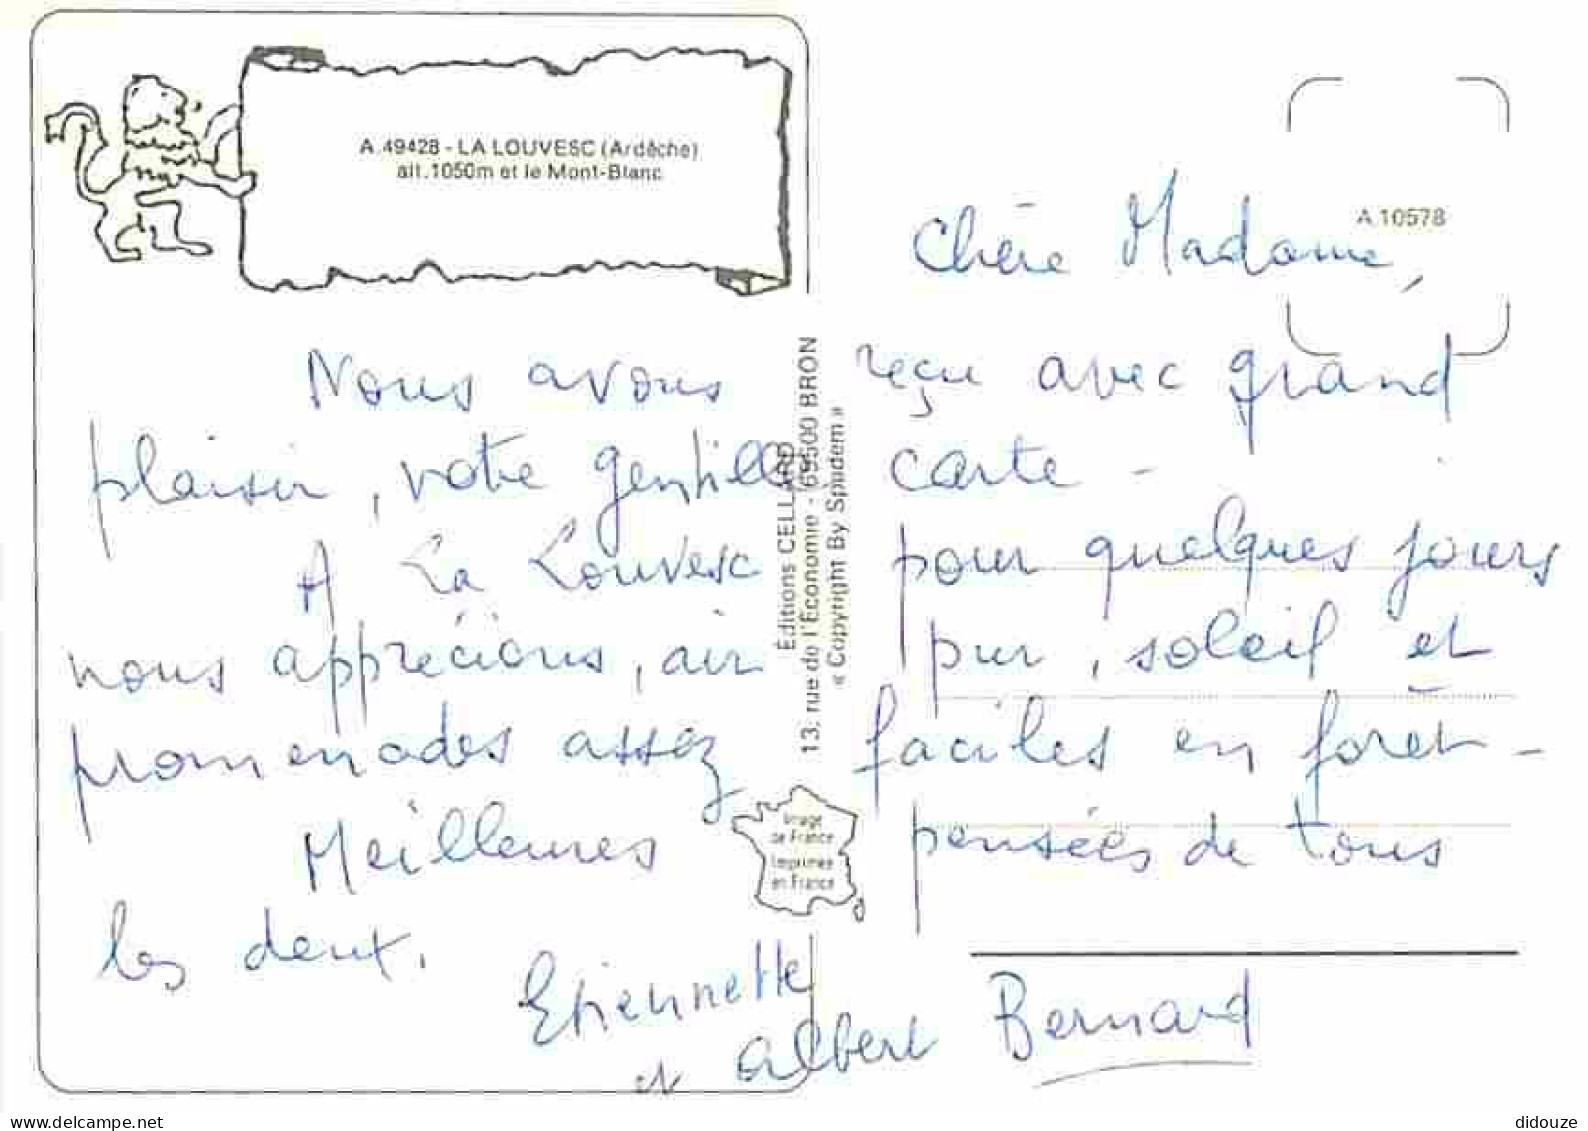 A.49428 - LA LOUVESC (Ardèche)
alt. 1050m et le Mont-Blanc
A 10578
Chère Madame,
Nous avons reçu avec grand
plaisir, votre gentille carte -
A La Louvesc pour quelques jours
nous apprécions, air pur, soleil et
promenades assez faciles en foret -
Meilleures pensées de tous
les deux.
Etiennette
et Albert Bernard
Éditions CELLARD
13, rue de l'Économie - 69500 BRON
« Copyright By Spadem »
Image
de France
Imprimée
en France
delcampe.net
didouze